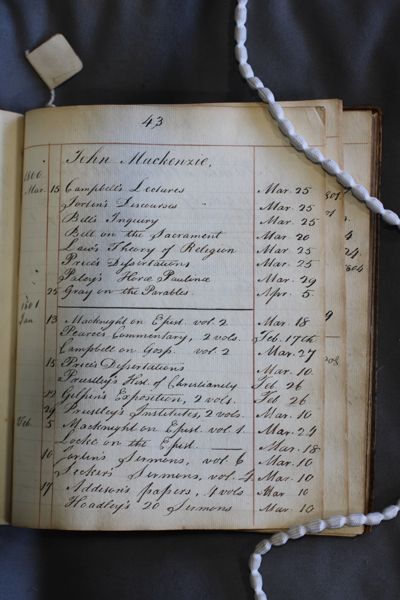 43
John Mackenzie,
1800.
Mar. 15 Campbell's Lectures Mar. 25
Jortin's Discourses Mar. 25
Bell's Inquiry Mar. 25
Bell on the Sacrament Mar. 20
Law's Theory of Religion Mar. 25
Price's Dissertations Mar. 25
Paley's Horæ Paulinæ Mar. 29
25 Gray on the Parables Apr. 5
1801
Jan 13 Macknight on Epist. vol. 2 Mar. 18
Pearce's Commentary, 2 vols. Feb. 17th
Campbell on Gosp. vol. 2 Mar. 27
15 Price's Dissertations Mar. 10
Priestley's Hist. of Christianity Feb 26
Gilpin's Exposition, 2 vols. Feb 26
24 Priestley's Institutes, 2 vols. Mar. 10
Feb. 5 Macknight on Epist. vol 1. Mar. 24
Locke on the Epist. Mar. 18
10 Jortin's Sermons, vol. 6 Mar. 10
Secker's Sermons, vol. 4 Mar. 10
17 Addison's papers, 4 vols Mar 10
Hoadley's 20 Sermons Mar. 10